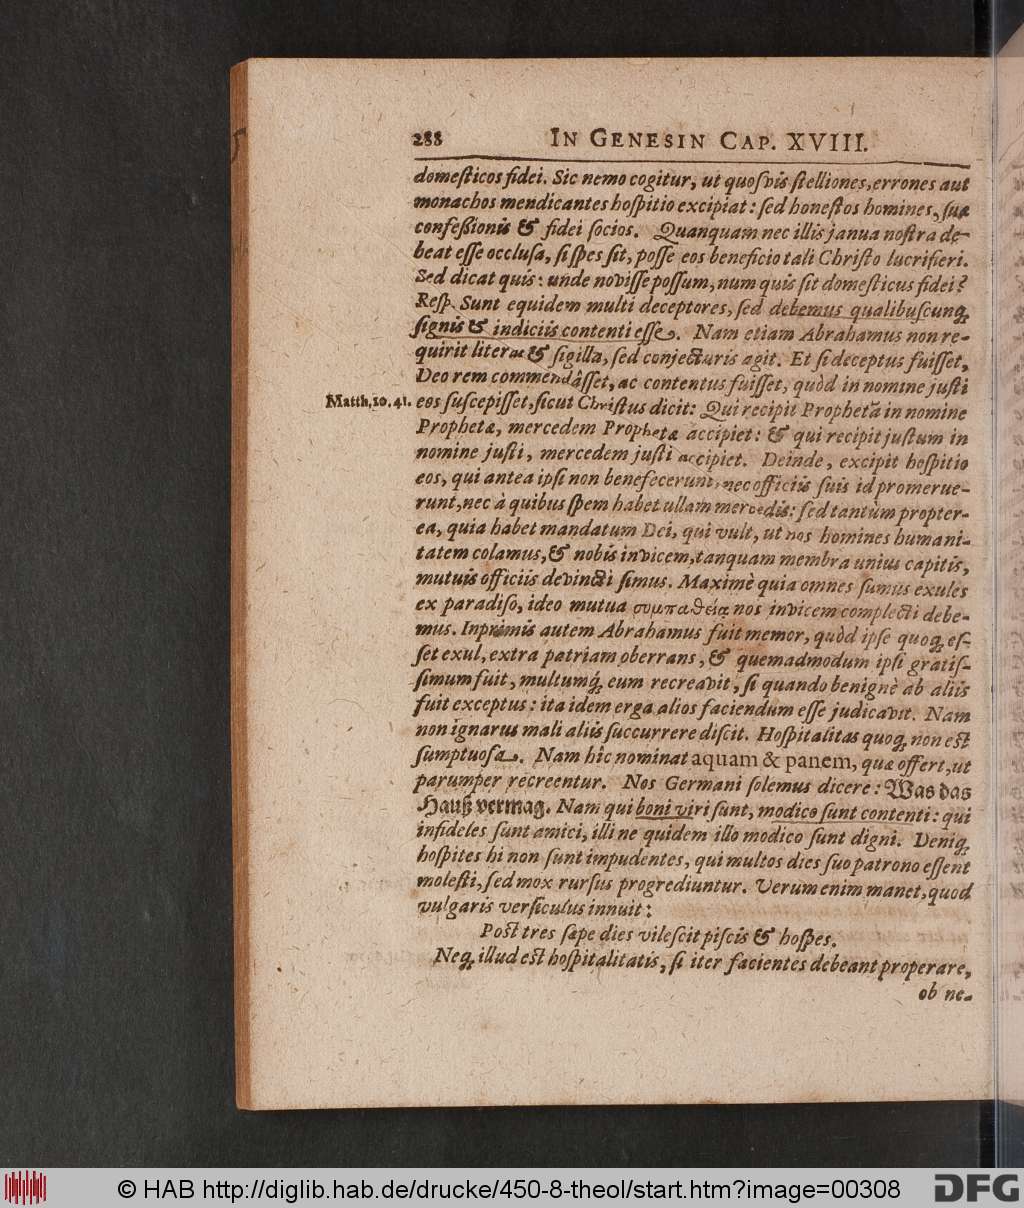 288 IN GENESIN CAP. XVIII.
domeſticos fidei. Sic nemo cogitur, ut quoſvis ſtelliones, errones aut
monachos mendicantes hoſpitio excipiat: ſed honeſtos homines, ſuæ
confeßionis & fidei ſocios. Quanquam nec illis janua noſtra de-
beat eſſe occluſa, ſi ſpes ſit, poſſe eos beneficio tali Chriſto lucrifieri.
Sed dicat quis: unde noviſſe poſſum, num quis ſit domeſticus fidei?
Reſp. Sunt equidem multi deceptores, ſed debemus qualibuſcunq;
ſignis & indiciis contenti eſſe. Nam etiam Abrahamus non re-
quirit literas & ſigilla, ſed conjecturis agit. Et ſi deceptus fuiſſet,
Deo rem commendâſſet, ac contentus fuiſſet, quòd in nomine juſti
Matth. 10. 41. eos ſuſcepiſſet, ſicut Chriſtus dicit: Qui recipit Prophetam in nomine
Prophetæ, mercedem Prophetæ accipiet: & qui recipit juſtum in
nomine juſti, mercedem juſti accipiet. Deinde, excipit hoſpitio
eos, qui antea ipſi non benefecerunt, nec officiis ſuis id promerue-
runt, nec à quibus ſpem habet ullam mercedis: ſed tantùm propter-
ea, quia habet mandatum Dei, qui vult, ut nos homines humani-
tatem colamus, & nobis invicem, tanquam membra unius capitis,
mutuis officiis devincti ſimus. Maximè quia omnes ſumus exules
ex paradiſo, ideo mutua συμπαθεία nos invicem complecti debe-
mus. Inprimis autem Abrahamus fuit memor, quòd ipſe quoq; eſ-
ſet exul, extra patriam oberrans, & quemadmodum ipſi gratiſ-
ſimum fuit, multumq́; eum recreavit, ſi quando benignè ab aliis
fuit exceptus: ita idem erga alios faciendum eſſe judicavit. Nam
non ignarus mali aliis ſuccurrere diſcit. Hoſpitalitas quoq; non eſt
ſumptuoſa. Nam hîc nominat aquam & panem, quæ offert, ut
parumper recreentur. Nos Germani ſolemus dicere: Was das
Hauß vermag. Nam qui boni viri ſunt, modico ſunt contenti: qui
infideles ſunt amici, illi ne quidem illo modico ſunt digni. Deniq;
hoſpites hi non ſunt impudentes, qui multos dies ſuo patrono eſſent
moleſti, ſed mox rurſus progrediuntur. Verum enim manet, quod
vulgaris verſiculus innuit:
Poſt tres ſæpe dies vileſcit piſcis & hoſpes.
Neq; illud eſt hoſpitalitatis, ſi iter facientes debeant properare,
ob ne-
© HAB http://diglib.hab.de/drucke/450-8-theol/start.htm?image=00308
DFG